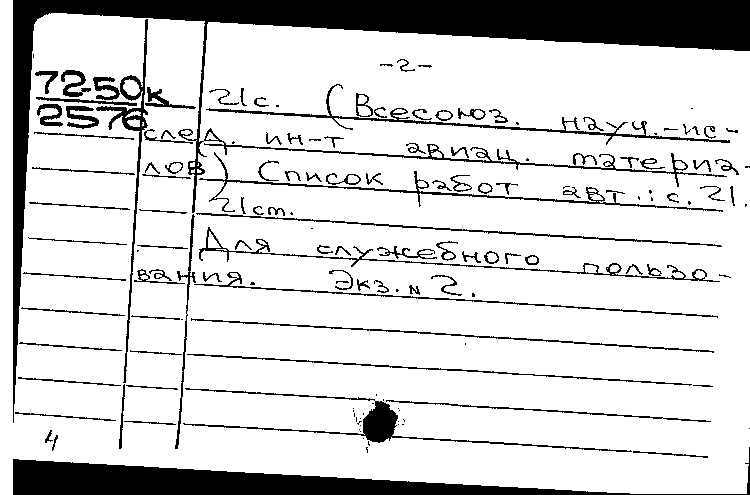 -2-
72-50к
2576
21 с. (Всесоюз. науч.-ис-
след. ин-т авиац. материа-
лов) Список работ авт.: с. 21.
21 cm.
Для служебного пользо-
вания. Экз. N 2.
4